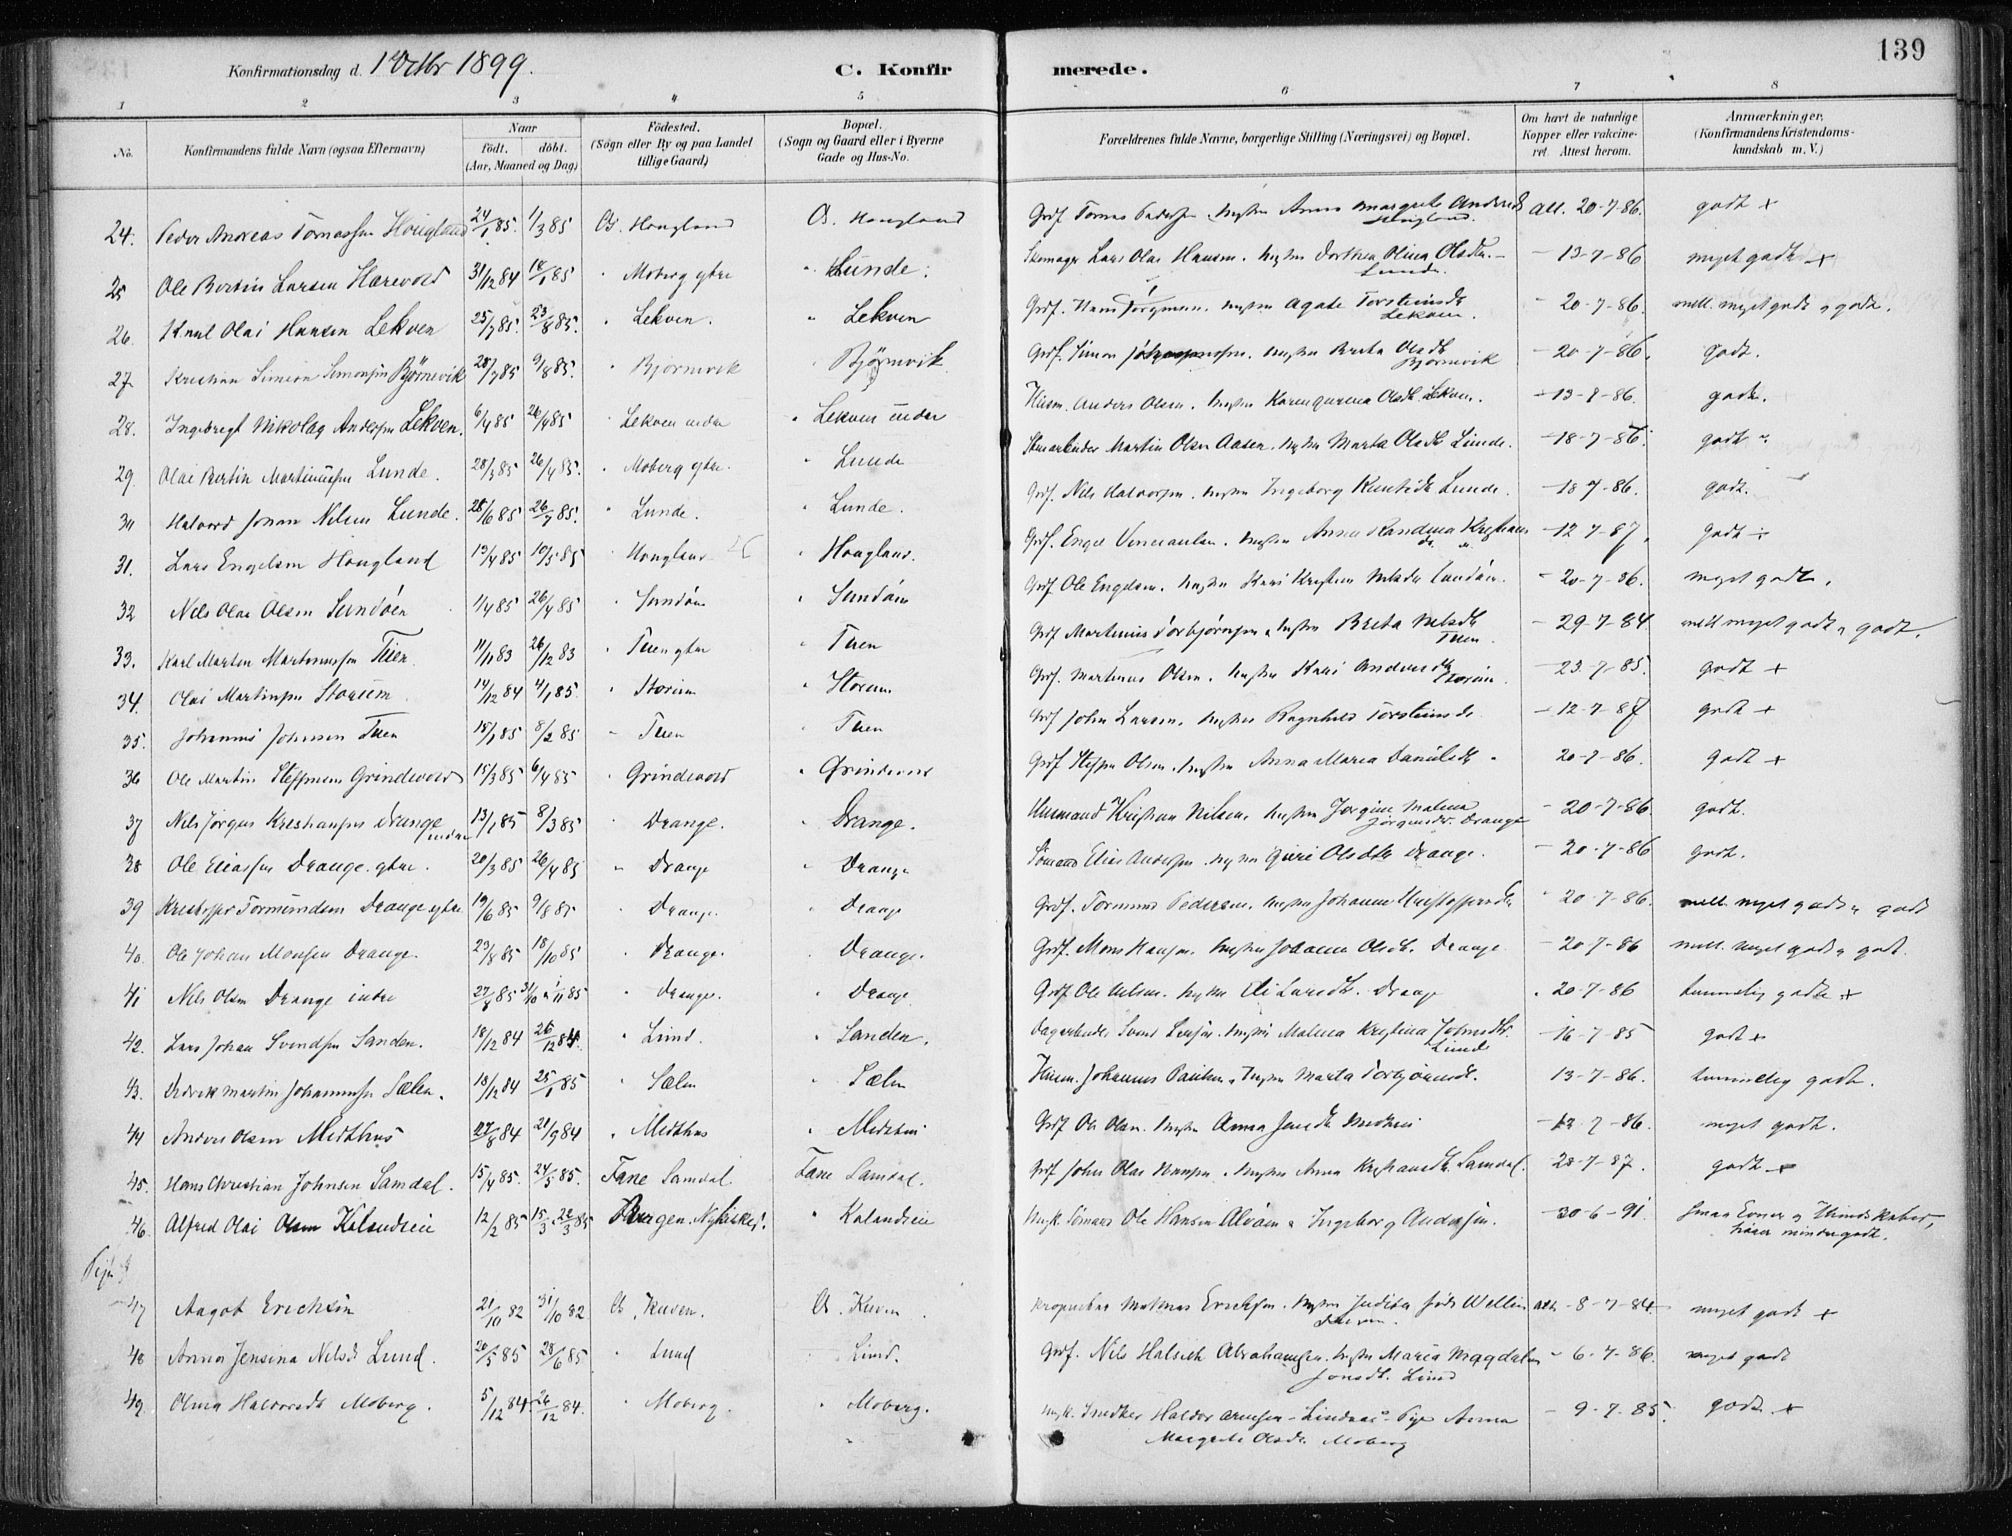 139
Konfirmationsdag d. 1 Octbr 1899.
C. Konfirmerede.
1 2 3 4 5 6 7 8
No.
Konfirmandens fulde Navn (ogsaa Efternavn)
Naar
födt. döbt.
(Aar, Maaned og Dag)
Födested.
(Sogn eller By og paa Landet
tillige Gaard)
Bopæl.
(Sogn og Gaard eller i Byerne
Gade og Hus-No.
Forældrenes fulde Navne, borgerlige Stilling (Næringsvei) og Bopæl.
Om havt de naturlige
Kopper eller vakcine-
ret. Attest herom.
Anmærkninger.
(Konfirmandens Kristendoms-
kundskab m. V.)
24. Peder Andreas Tomassen Hougland 24/1 85. 1/3 85 Os. Hougland Os Hougland Grdf. Tomas Pedersen Hustru Anna Margrete Andersd. Hougland. Att. 20-7-86. godt +
25 Ole Bertin Larsen Hærevold 31/12 84 18/1 85 " Moberg ytre " Lunde. Skomager Lars Olai Hansen. Hustru Dorthea Olina Olsdtr. Lunde. - 13-7-86 meget godt +
26. Knut Olai Hansen Lekven 25/7 85. 23/8 85. " Lekven. " Lekven Grdf. Hans Jørgensen. Hustru Agate Torsteinsdtr Lekven. - 20-7-86. mell. meget godt og godt.
27 Kristian Simon Simonsen Bjørnevik 28/7 85 9/8 85. " Bjørnevik Bjørnvik Grdf. Simon Hustru Brita Olsdtr Bjørnevik - 20-7-86. godt.
28. Ingebregt Nikolag Andersen Lekven. 6/4 85 26/4 85 " Lekven indre " Lekven indre Husm. Anders Olsen. Hustru Olsdtr. Lekven. - 13-7-86. godt.
29. Olai Bertin Martinussen Lunde. 28/3 85 26/4 85. " Moberg ytre. " Lunde Martin Olsen Aasen. Hustru Marta Olsdtr Lunde. - 18-7-86. godt
30 Halvord Johan Nilsen Lunde. 28/6 85 26/7 85. " Lunde. " Lunde. Grdf. Nils Halvorsen. Hustru Ingeborg Knutsdtr Lunde. - 18-7-86. godt.
31. Lars Engelsen Hougland 13/4 85 10/5 85 " Hougland " Hougland. Grdf. Engel Hustru Anna Randina - 12-7-87. godt +
32 Nils Olai Olsen Sundöen 1/4 85 26/4 85 " Sundöen " Sundöen Grdf Ole Engelsen. Hustru Kari Nilsdtr Sundöen. - 20-7-86. meget godt.
33. Karl Martin Martinussen Tuen 11/11 83 26/12 83 " Tuen ytre " Tuen Grdf Martinus Torbjørnsen. Hustru Brita Nilsdtr Tuen. - 29-7-84 mell meget godt og godt.
34. Olai Martinsen Storum 14/12 84 4/1 85. " Storum " Storum Grdf. Martinus Olsen. Hustru Kari Andersdtr Storum. - 23-7-85. godt +
35. Johannes Johnsen Tuen 18/1 85 8/2 85 " Tuen " Tuen Grdf John Larsen. Hustru Ragnhild Torsteinsdtr - 12-7-87 godt +
36 Ole Martin Steffensen Grindevold 15/3 85 6/4 85 " Grindevold " Grindevold Grdf Steffen Olsen. Hustru Anna Maria Danielsdtr 20-7-86. godt +
37 Nils Jørgen Kristiansen Drange indre 13/1 85 8/3 85 " Drange. " Drange. Husmand Kristian Nilsen. Hustru Jørgine Malena Jørgensdtr. Drange - 20-7-86. godt.
38 Ole Eliassen Drange ytre. 20/3 85 26/4 85 " Drange " Drange Sømand Elias Andersen. Hustru Guri Olsdtr Drange. - 20-7-86 godt.
39 Kristoffer Tormundsen Drange ytre 19/6 85 9/8 85 " Drange. " Drange Grdf. Tormund Pedersen. Hustru Johanne Kristoffersdtr " 20-7-86. mell. meget godt og godt
40. Ole Johan Monsen Drange. 23/8 85 18/10 85 " Drange. " Drange. Grdf. Mons Hansen. Hustru Johanna Olsdtr. Drange - 20-7-86 mell. meget godt og godt.
41 Nils Olsen Drange indre 27/8 85 31/10 1/11 85 " Drange. " Drange Grdf Ole Nilsen. Hustru Eli Larsdtr. Drange . 20-7-86 temmelig godt +
42. Lars Johan Svendsen Sanden. 18/12 84 26/12 84. " Lund. " Sanden. Dagarbeider Svend Hustru Malena Kristina Johnsdtr. Lunde - 16-7-85 godt +
43. Didrik Martin Johannessen Sælen. 18/12 84 25/1 85 " Sælen " Sælen Husm. Johannes Paulsen. Hustru Marta Torbjørnsdtr. 13-7-86. temmelig godt.
44 Anders Olsen Midthus 27/8 84 21/9 84 " Midthus " Midthus Grdf Ole Olsen. Hustru Anna - 13-7-86. meget godt.
45. Hans Christian Johnsen Samdal. 15/4 85. 24/5 85. Fane Samdal Fane Samdal. Grdf John Olai Hansen. Hustru Anna Kristiansdtr Samdal. - 28-7-87. godt +
46. Alfred Olai Olsen Kalandseie 12/2 85 15/3 22/3 85 Bergen. Nykirkes. " Kalandseie Ole Hansen Alvøen Ingeborg Andersen. - 30-6-91. Smaa Evner og Kundskaber, høiere mindre godt.
Piger
47 Aagot Erichsen 21/10 82 31/10 82 Os. Kuven. Os. Kuven Mathias Erichsen. Hustru Judita født Wellin Kuven. att. 8-7-84 meget godt +
48 Anna Jensina Nilsdtr Lund. 20/5 85 28/6 85 " Lund " Lund. Grdf. Nils Abrahamsen. Hustru Maria Magdalena Jonsdtr. Lund - 6-7-86. meget godt
49. Olina Haldorsdtr Moberg. 5/12 84. 26/12 84. " Moberg. " Moberg. Snedker Haldor Arnesen Pige Anna Margrete Olsdtr. Moberg - 9-7-85. godt +